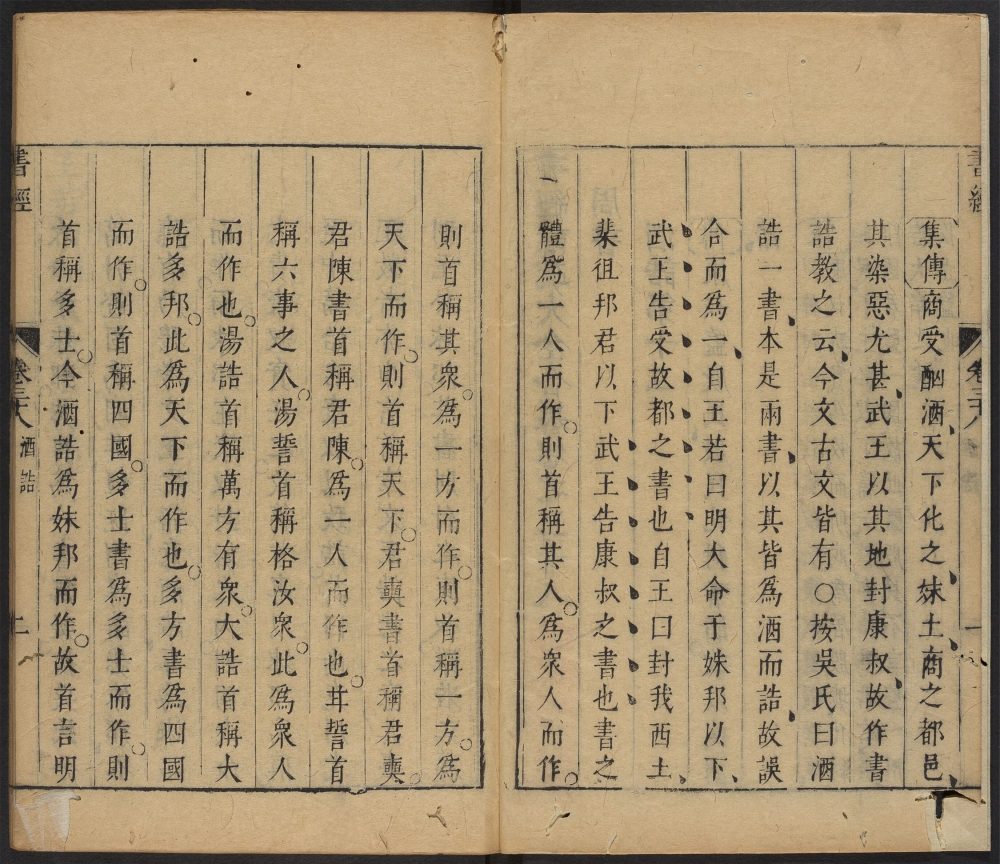 書經
集傳商受酗酒天下化之妹土商之都邑
其染惡尤甚武王以其地封康叔故作書
誥教之云今文古文皆有○按吳氏曰酒
誥一書本是兩書以其皆爲酒而誥故誤
合而爲一自王若曰明大命于妹邦以下
武王告受故都之書也自王曰封我西土
棐徂邦君以下武王告康叔之書也書之
體爲一人而作則首稱其人爲衆人而作
則首稱其衆爲一方而作則首稱一方爲
天下而作則首稱天下君奭書首稱君奭
君陳書首稱君陳爲一人而作也甘誓首
稱六事之人湯誓首稱格汝衆此爲衆人
而作也湯誥首稱萬方有衆大誥首稱大
誥多邦此爲天下而作也多方書爲四國
而作則首稱四國多士書爲多士而作則
首稱多士今酒誥爲妹邦而作故首言明
書經
卷二十八
酒誥
二